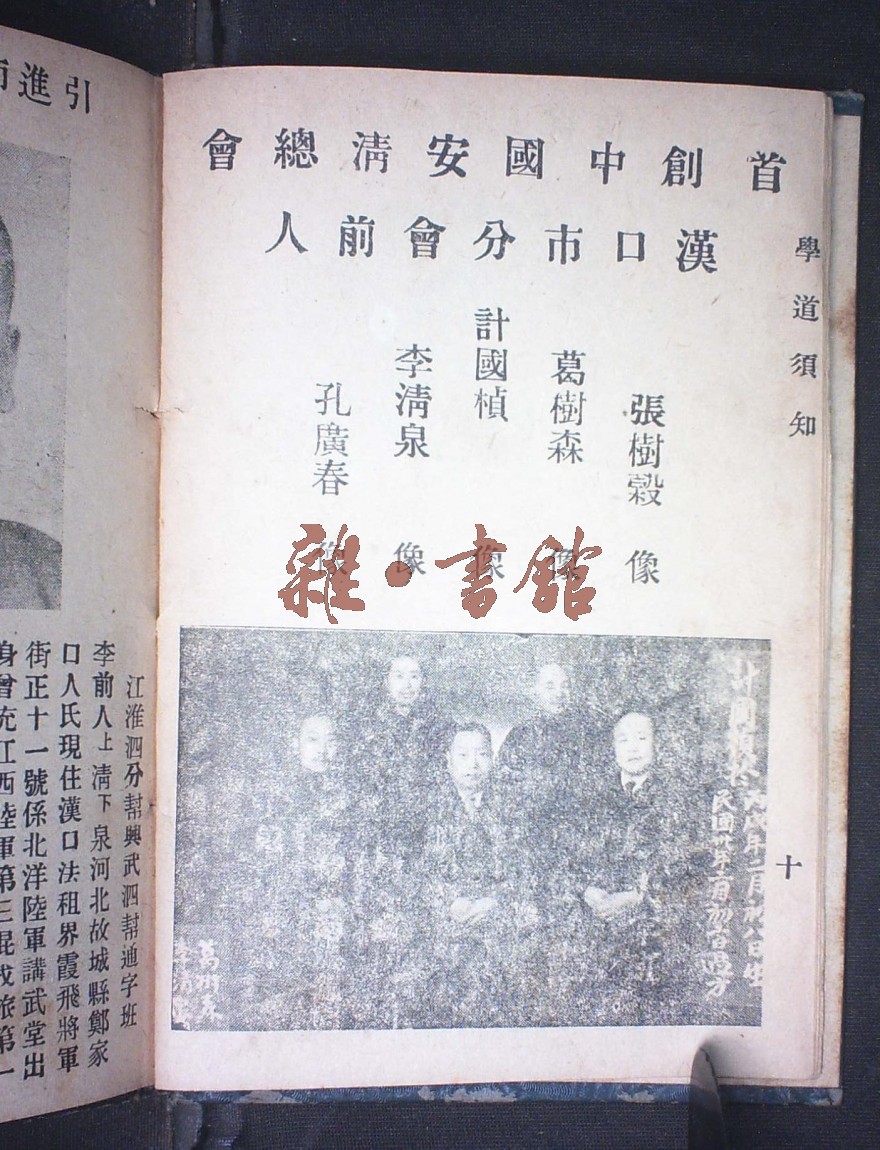 學道須知
首創中國安清總會
漢口市分會前人
張樹穀 像
葛樹森 像
計國楨 像
李清泉 像
孔廣春 像
十
雜·書館
丙戌年二月初八日生
葛樹森
引進
江淮泗分幫興武泗幫通字班
李前人上清下泉河北故城縣鄭家
口人氏現住漢口法租界霞飛將軍
街正十一號係北洋陸軍講武堂出
身曾充江西陸軍第三混成旅第一